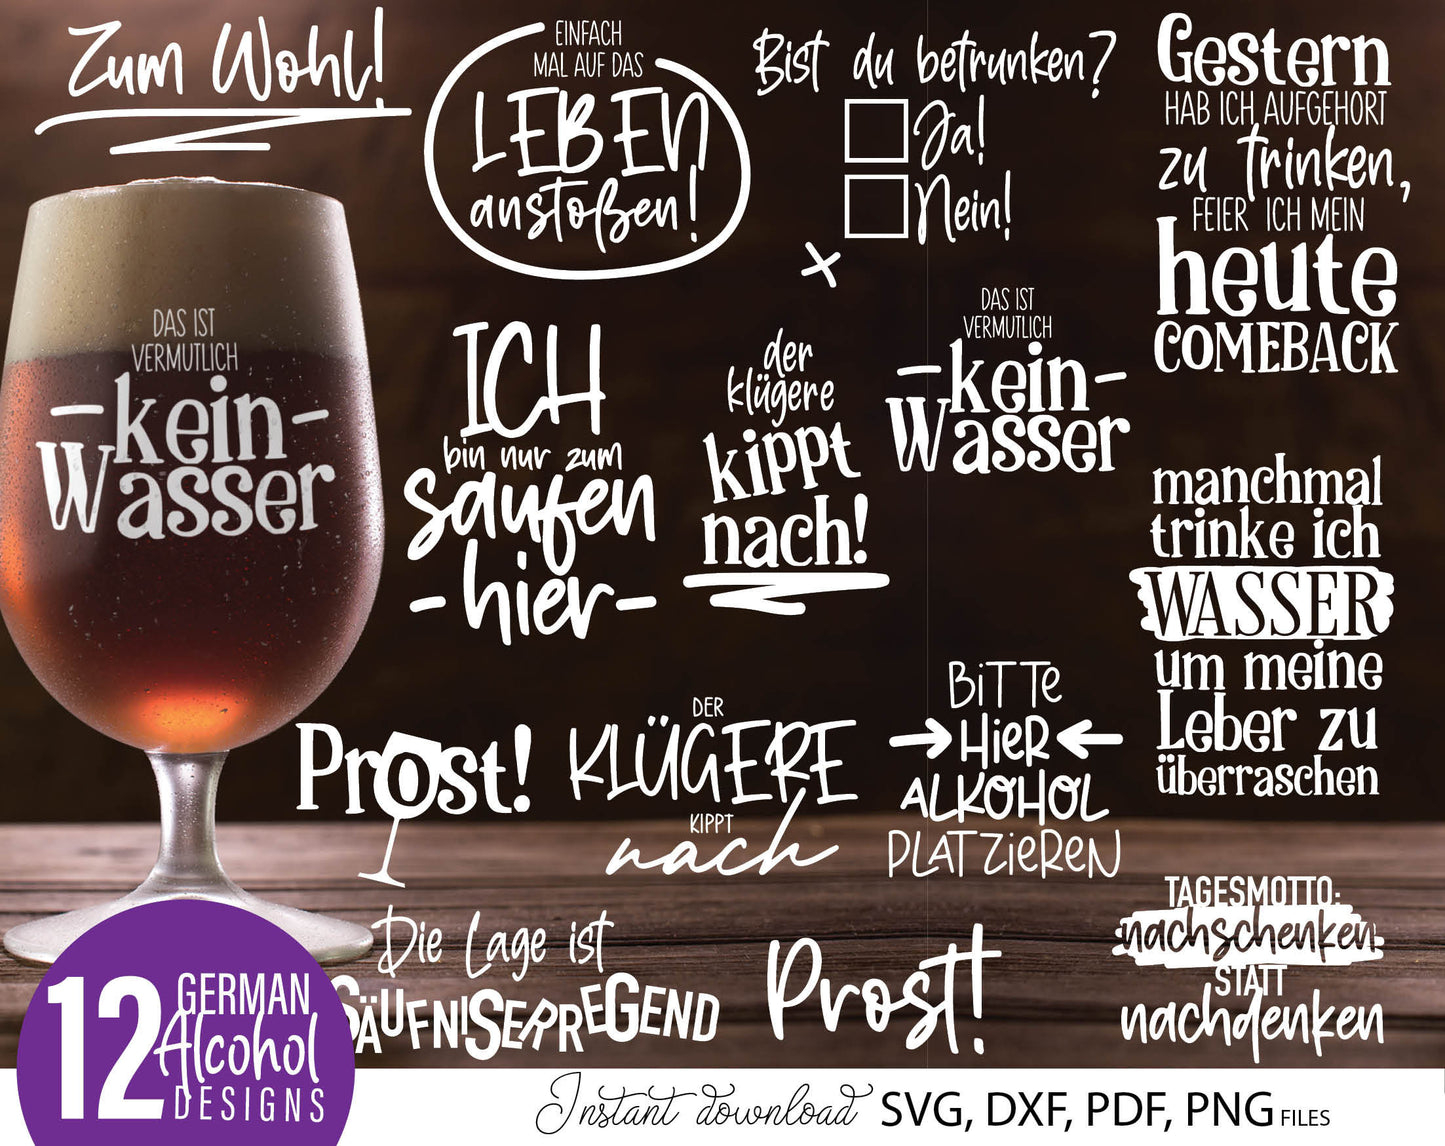 Zum Wohl!
EINFACH
MAL AUF DAS
LEBEN
anstoßen!
Bist du betrunken?
Ja!
Nein!
Gestern
HAB ICH AUFGEHÖRT
zu trinken,
FEIER ICH MEIN
heute
COMEBACK
DAS IST
VERMUTLICH
-kein-
Wasser
ICH
bin nur zum
saufen
-hier-
der
klügere
kippt
nach!
DAS IST
VERMUTLICH
-kein-
Wasser
manchmal
trinke ich
WASSER
um meine
Leber zu
überraschen
Prost!
DER
KLÜGERE
KIPPT
nach
BITTE
HIER
ALKOHOL
PLATZIEREN
Die Lage ist
SÄUFNISERREGEND
Prost!
TAGESMOTTO:
nachschenken
STATT
nachdenken
12 GERMAN
Alcohol
DESIGNS
Instant download SVG, DXF, PDF, PNG FILES